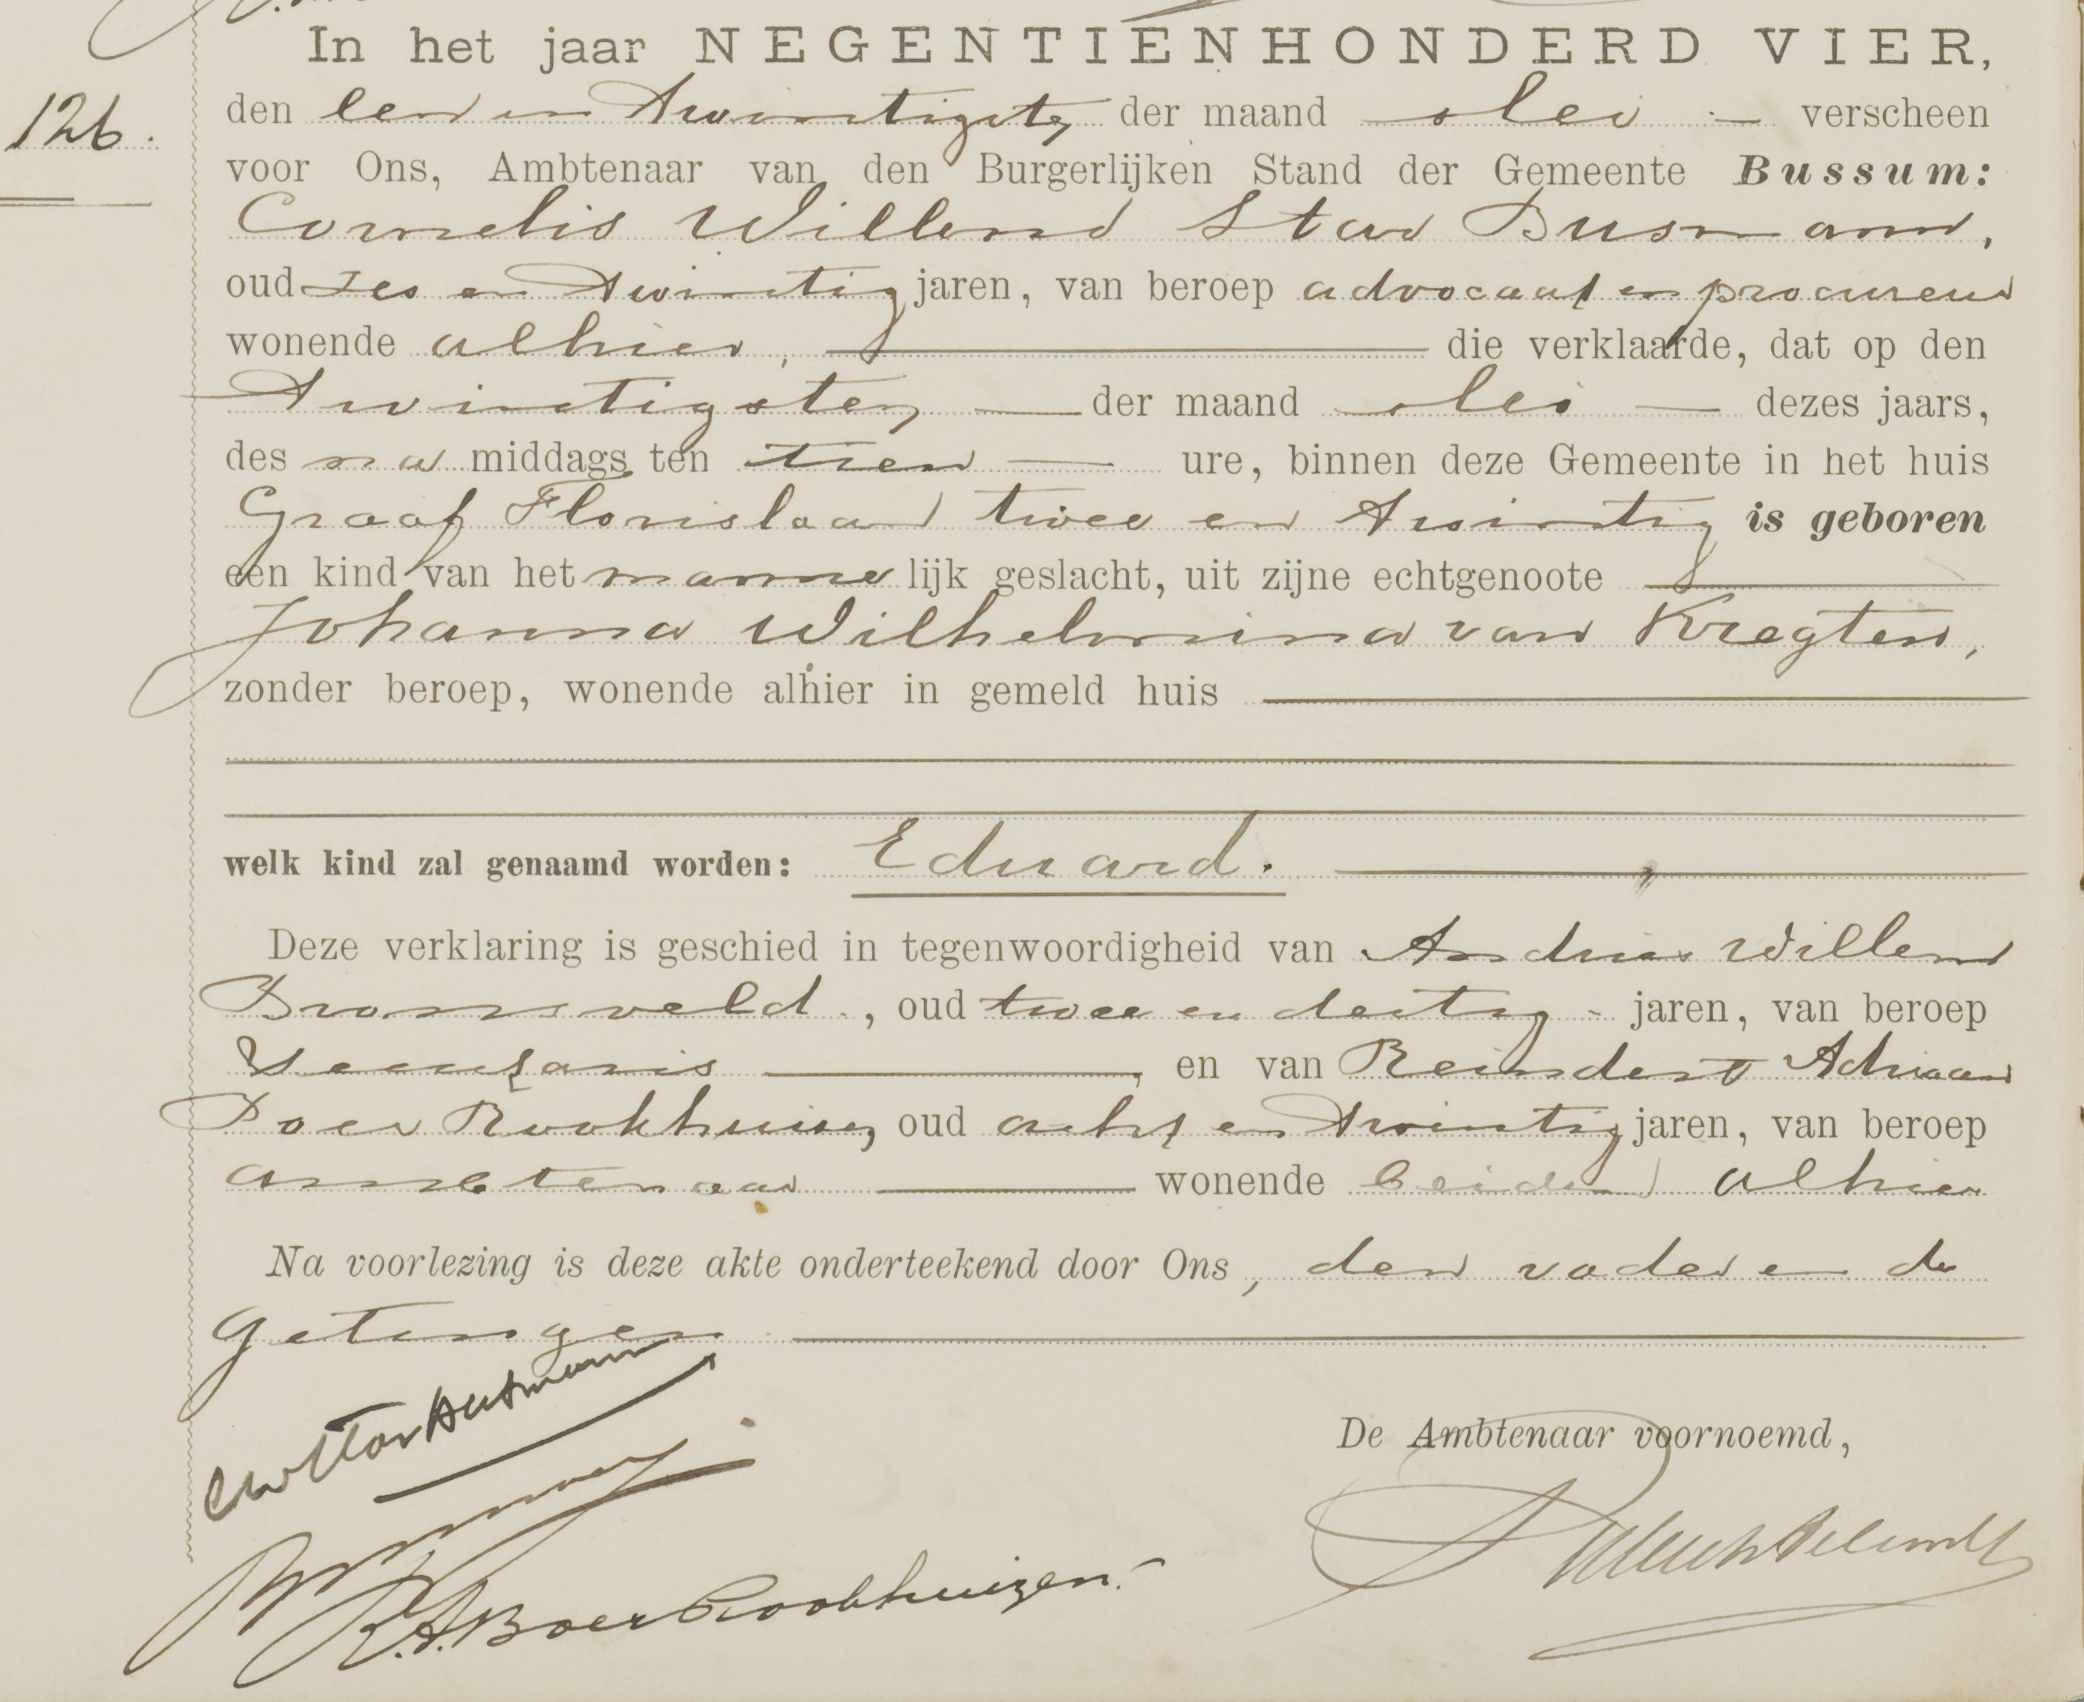 In het jaar NEGENTIENHONDERD VIER,
126.
den een en twintigsten der maand Mei verscheen
voor Ons, Ambtenaar van den Burgerlijken Stand der Gemeente Bussum:
Cornelis Willem Star Busmann,
oud zes en twintig jaren, van beroep advocaat en procureur
wonende alhier, die verklaarde, dat op den
twintigsten der maand Mei dezes jaars,
des na middags ten tien ure, binnen deze Gemeente in het huis
Graaf Florislaan twee en twintig is geboren
een kind van het manne lijk geslacht, uit zijne echtgenoote
Johanna Wilhelmina van Kregten,
zonder beroep, wonende alhier in gemeld huis
welk kind zal genaamd worden: Eduard.
Deze verklaring is geschied in tegenwoordigheid van Andries Willem
Bronsveld, oud twee en dertig jaren, van beroep
Secretaris, en van Reindert Adriaan
Boer Rookhuizen, oud acht en twintig jaren, van beroep
ambtenaar wonende beiden alhier
Na voorlezing is deze akte onderteekend door Ons, den vader en de
getuigen
CW Star Busmann
De Ambtenaar voornoemd,
R.A. Boer Rookhuizen.